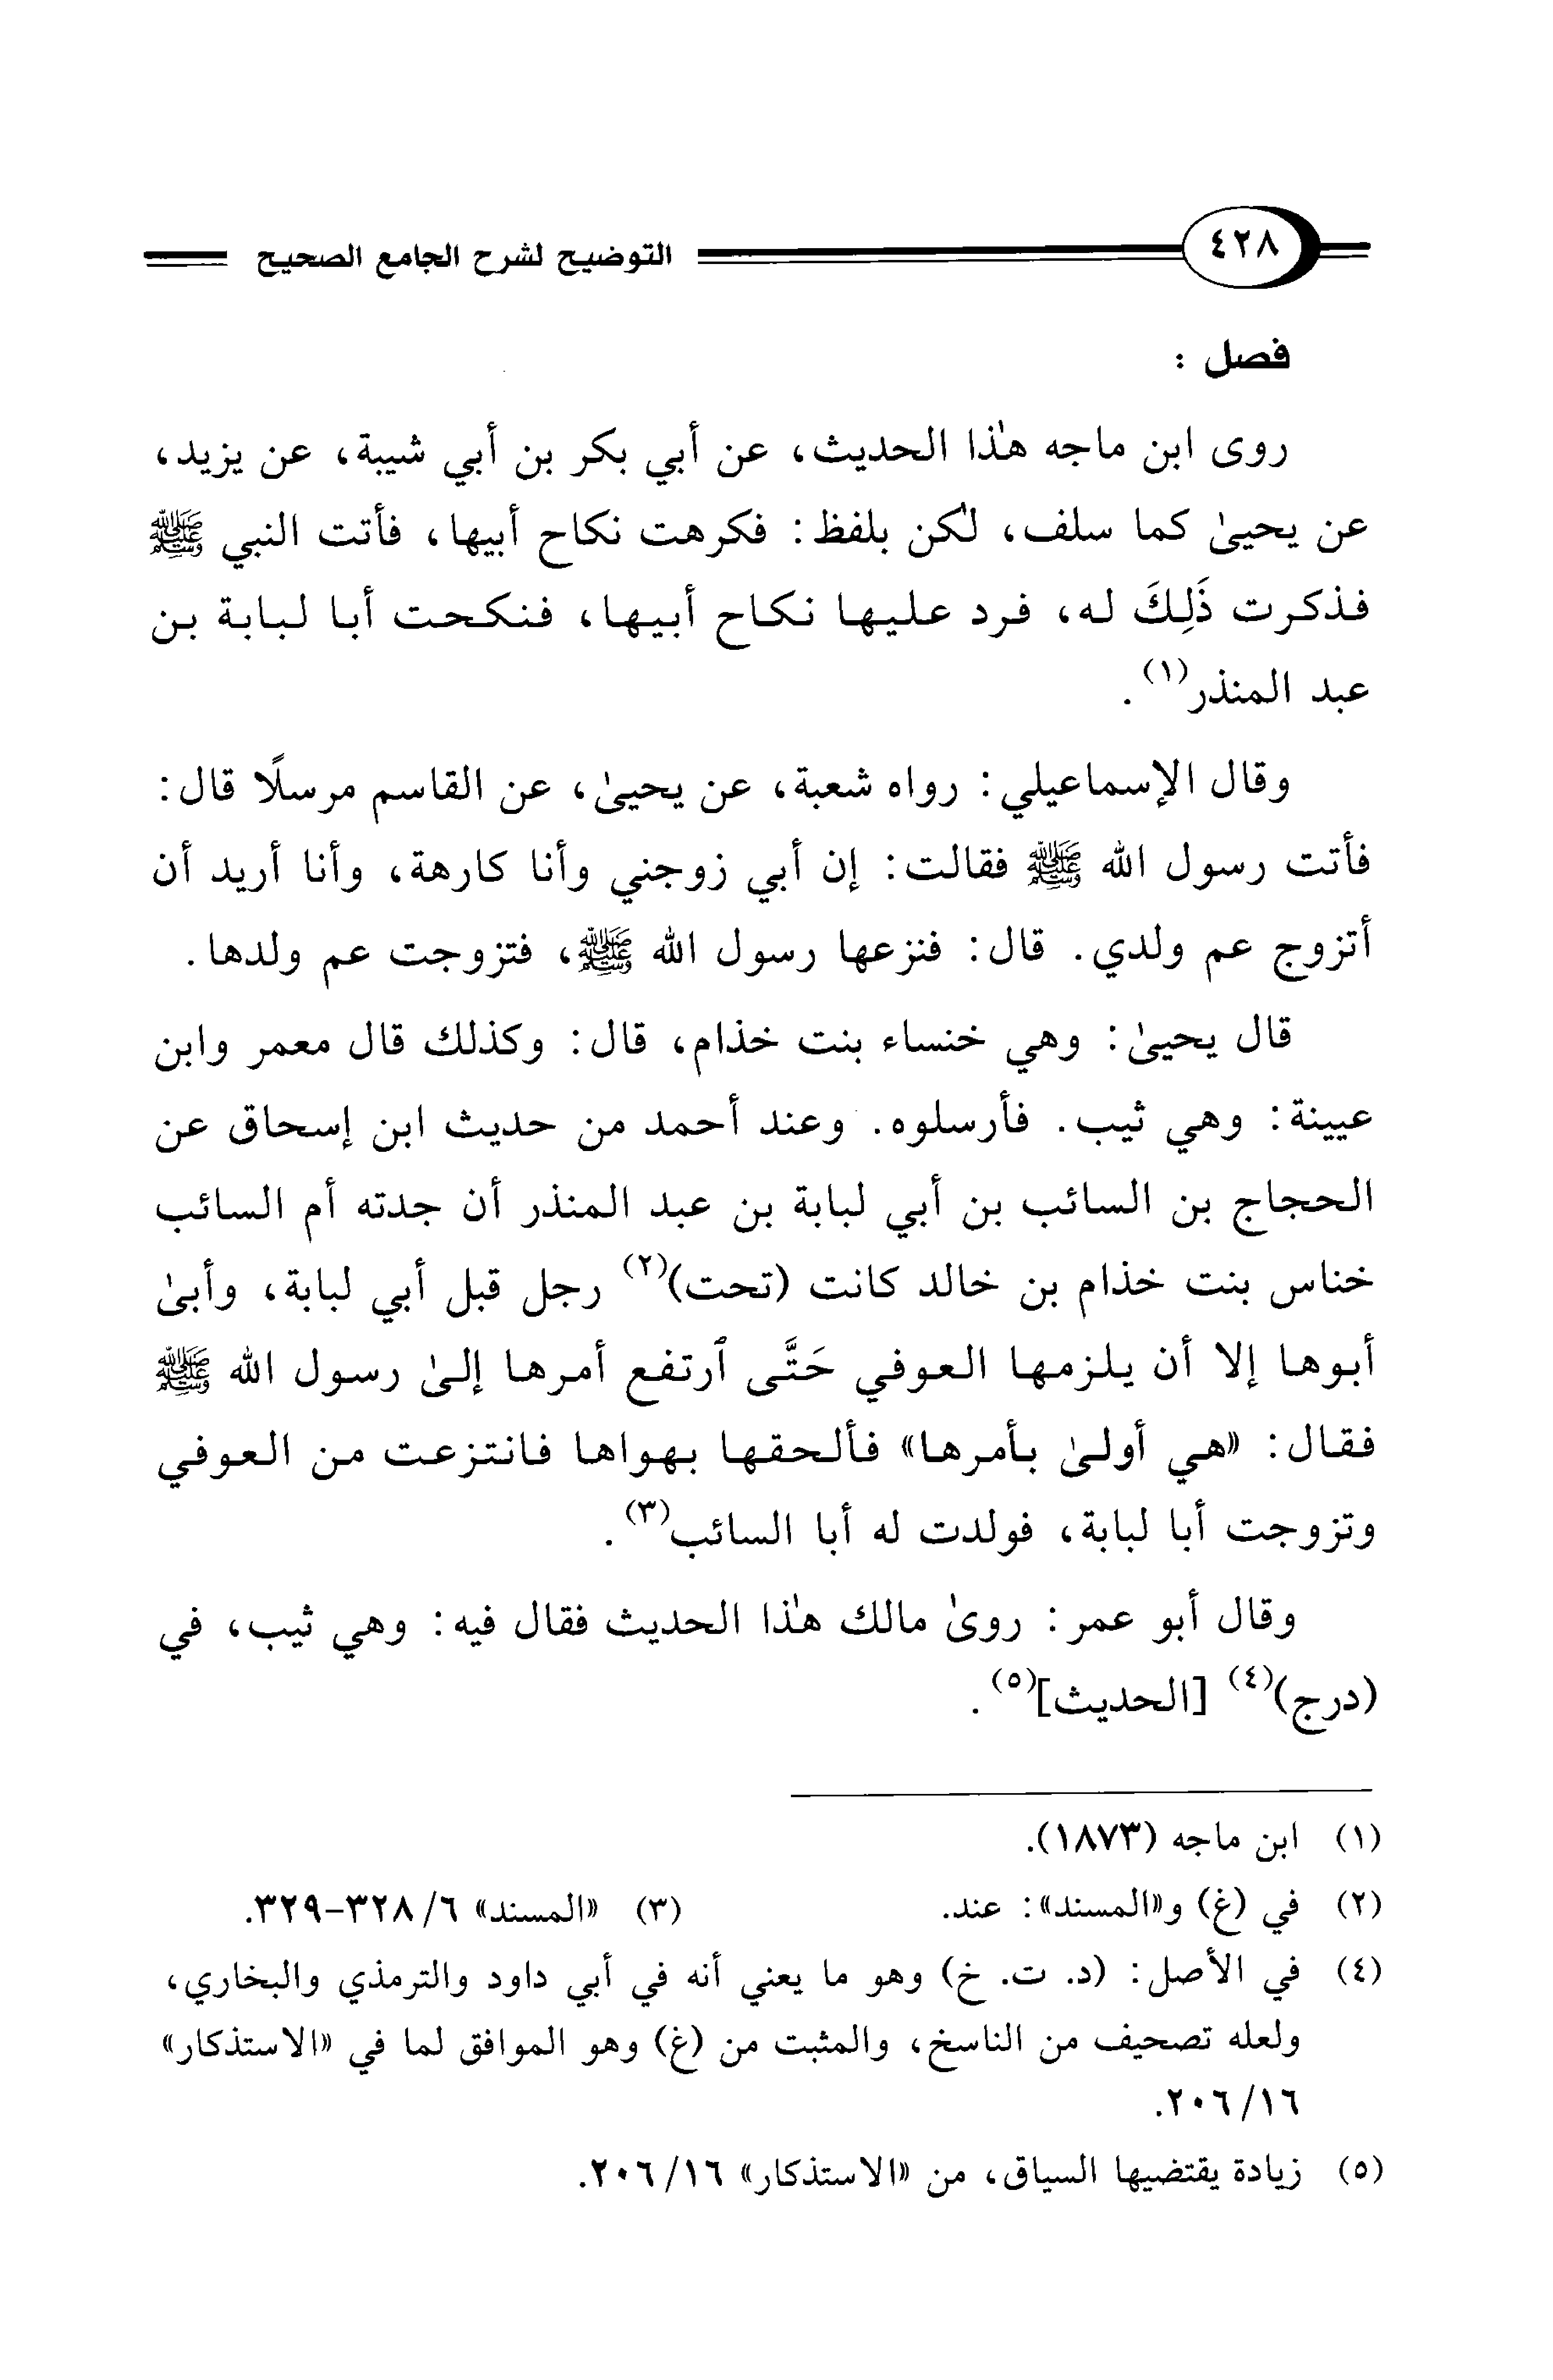 ٤٢٨
التوضيح لشرح الجامع الصحيح
فصل :
روى ابن ماجه هذا الحديث، عن أبي بكر بن أبي شيبة، عن يزيد،
عن يحيىٰ كما سلف، لكن بلفظ: فكرهت نكاح أبيها، فأتت النبي ﷺ
فذكرت ذَلِكَ له، فرد عليها نكاح أبيها، فنكحت أبا لبابة بن
عبد المنذر(١) .
وقال الإسماعيلي: رواه شعبة، عن يحيىٰ، عن القاسم مرسلًا قال:
فأتت رسول الله ﷺ فقالت: إن أبي زوجني وأنا كارهة، وأنا أريد أن
أتزوج عم ولدي. قال: فنزعها رسول الله ﷺ، فتزوجت عم ولدها.
قال يحيىٰ: وهي خنساء بنت خذام، قال: وكذلك قال معمر وابن
عيينة: وهي ثيب. فأرسلوه. وعند أحمد من حديث ابن إسحاق عن
الحجاج بن السائب بن أبي لبابة بن عبد المنذر أن جدته أم السائب
خناس بنت خذام بن خالد كانت (تحت)(٢) رجل قبل أبي لبابة، وأبىٰ
أبوها إلا أن يلزمها العوفي حَتَّى ٱرتفع أمرها إلىٰ رسول الله ﷺ
فقال: «هي أولىٰ بأمرها» فألحقها بهواها فانتزعت من العوفي
وتزوجت أبا لبابة، فولدت له أبا السائب(٣) .
وقال أبو عمر: روىٰ مالك هذا الحديث فقال فيه: وهي ثيب، في
(درج)(٤) [الحديث](٥) .
(١) ابن ماجه (١٨٧٣).
(٢) في (غ) و«المسند»: عند. (٣) «المسند» ٦/ ٣٢٨-٣٢٩.
(٤) في الأصل: (د. ت. خ) وهو ما يعني أنه في أبي داود والترمذي والبخاري،
ولعله تصحيف من الناسخ، والمثبت من (غ) وهو الموافق لما في «الاستذكار»
١٦/ ٢٠٦.
(٥) زيادة يقتضيها السياق، من «الاستذكار» ١٦/ ٢٠٦.